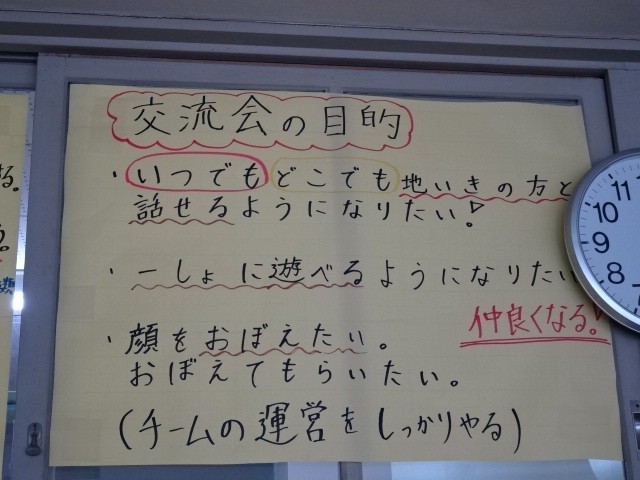 交流会の目的
・いつでもどこでも地いきの方と
話せるようになりたい!
・一しょに遊べるようになりたい
仲良くなる!
・顔をおぼえたい。
おぼえてもらいたい。
(チームの運営をしっかりやる)
11
10
9
8
7